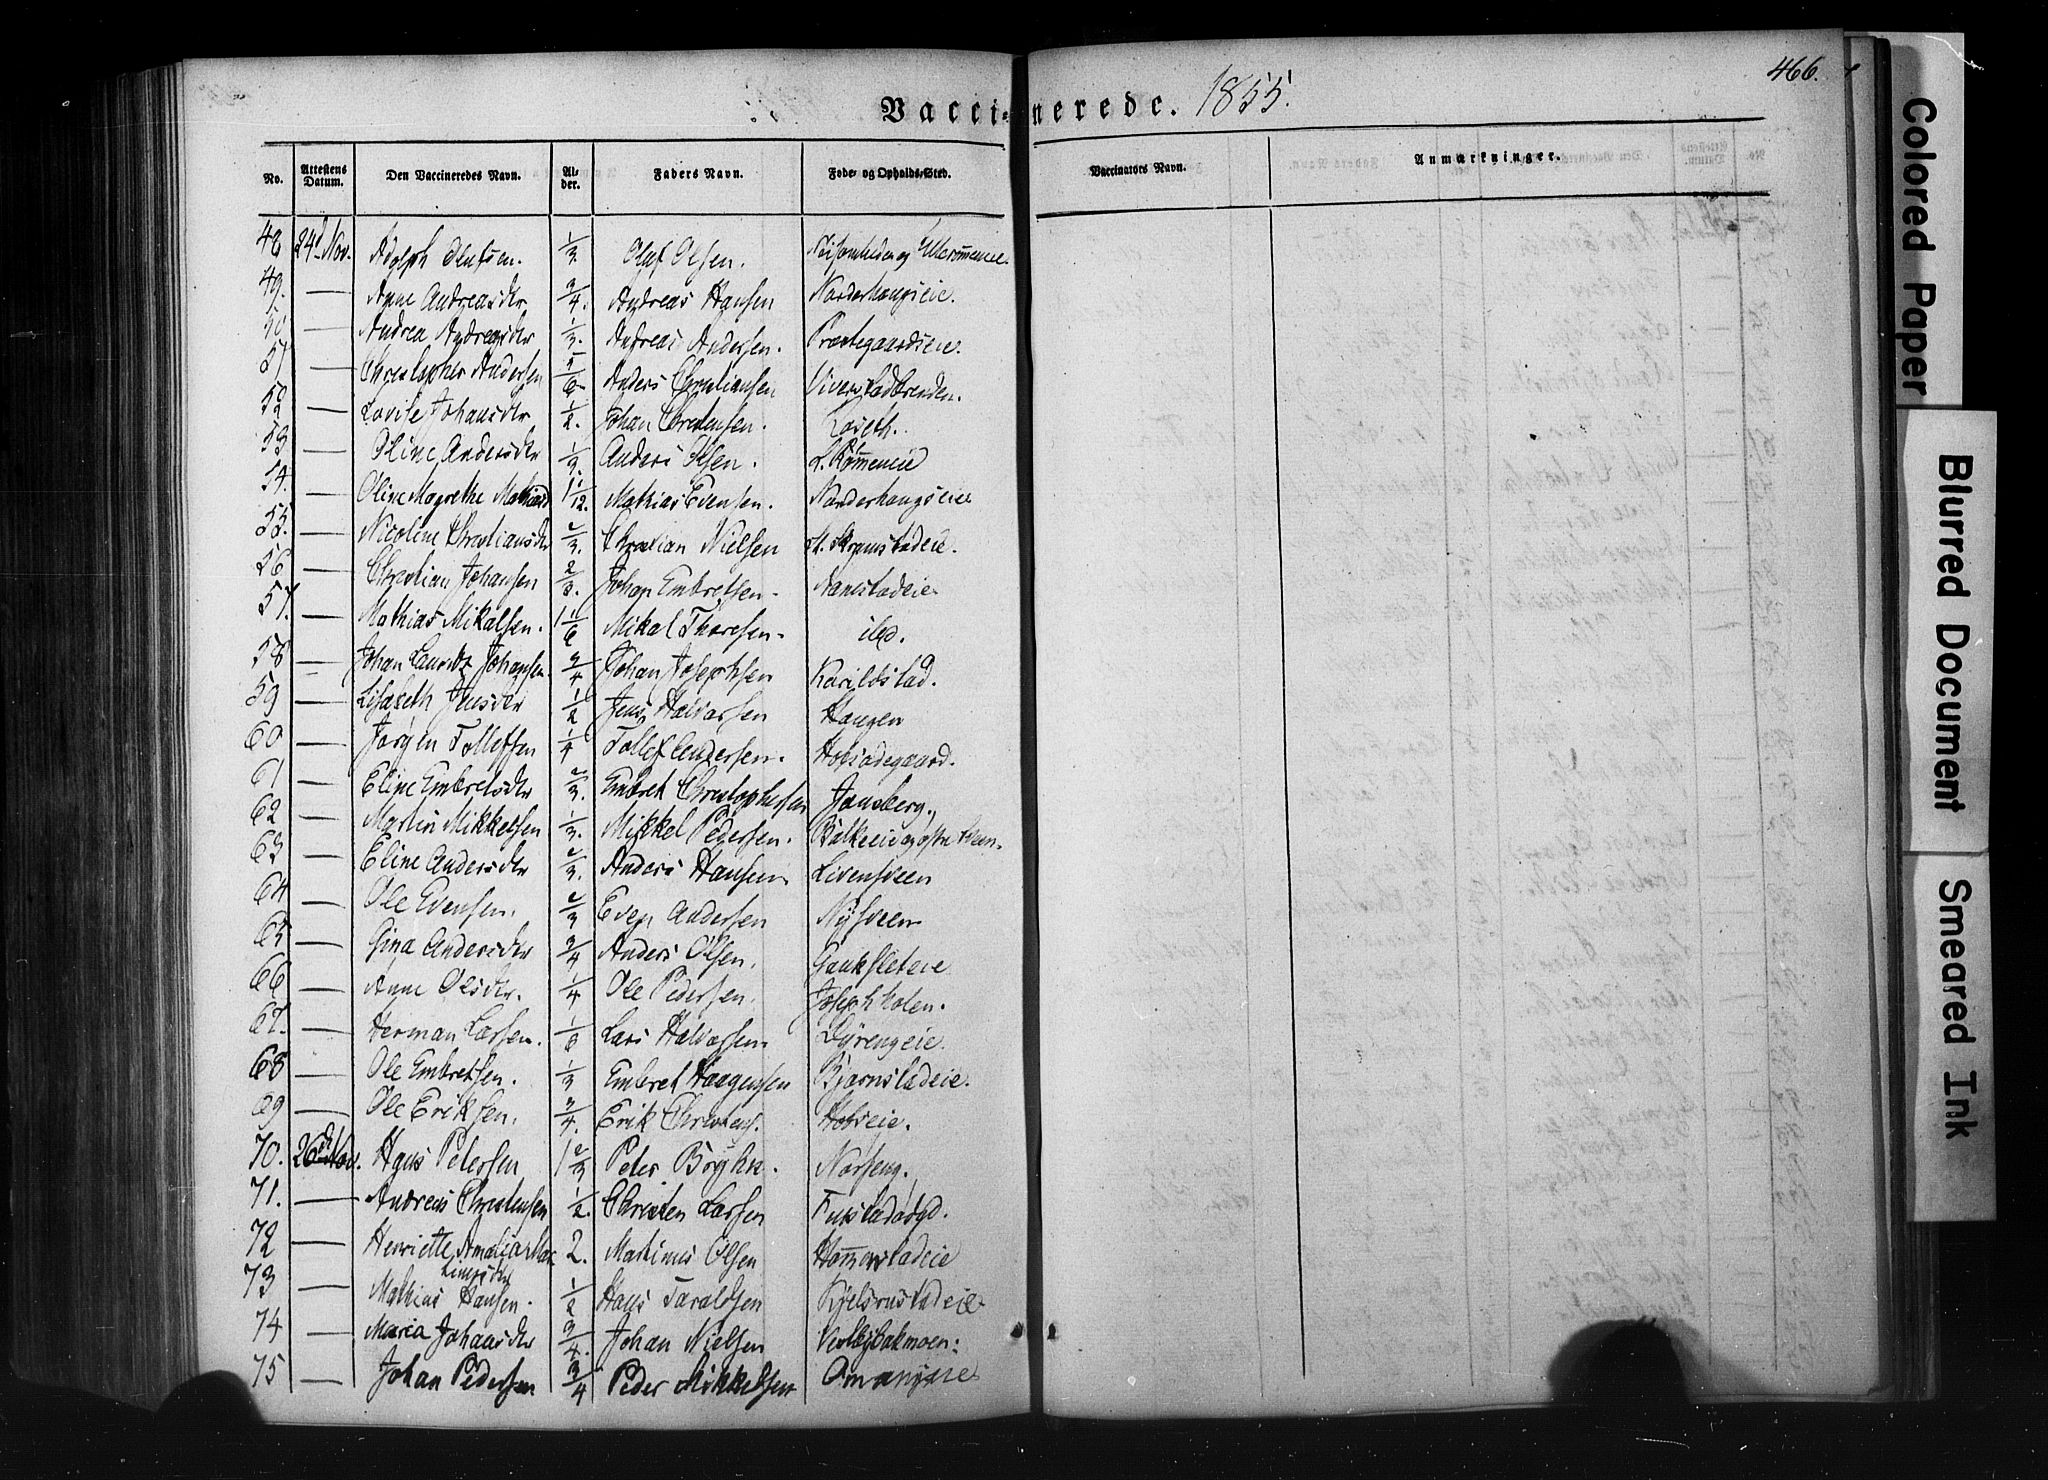 466.
Vaccinerede. 1855.
No. Attestens Datum. Den Vaccineredes Navn. Alder. Faders Navn. Føde- og Opholds-Sted. Vaccinators Navn. Anmærkninger.
48 24d Nov. Adolph Olufsen. 1/3 Oluf Olsen.
49. — Anne Andreasdtr 3/4. Andreas Hansen Norderhaugseie.
50 — Andrea Andreasdtr 1/3. Andreas Andersen. Præstegaardseie.
51 — Christopher Andersen 5/6 Anders Christiansen
52 — Lovise Johansdtr 1/2. Johan Christensen. Koseth.
53 — Oline Andersdtr 1/3. Anders Olsen. L. Rømmeneie
54. — Oline Magrethe Mathiasd 1 1/12. Mathias Evensen. Norderhaugseie
55. — Nicoline Christiansdtr 2/3. Christian Nielsen
56 — Christian Johansen 2/3. Johan Embretsen. Nanestadeie
57. — Mathias Mikalsen. 1 1/6 Mikal Thoresen. ibd.
58 — Johan Lauritz Johansen. 3/4 Johan Josephsen Karildstad.
59 — Lisabeth Jensdtr 1/2 Jens Halvorsen Haugen
60 — Jørgen Tollefsen 1/4 Tollef Andersen. Hobsødegaard.
61 — Eline Embretsdtr 2/3. Embret Christophersen Jønsberg.
62 — Martin Mikkelsen 1/3. Mikkel Pedersen.
63 — Eline Andersdtr 2/3. Anders Hansen Livensveen
64 — Ole Evensen. 2/3 Even Andersen Nysveen
65 — Gina Andersdtr 3/4 Anders Olsen. Gaukfleteie
66 — Anne Olsdtr. 1/4 Ole Pedersen. Josephholen.
67. — Herman Larsen. 1/6 Lars Halvorsen Dyrengeie.
68 — Ole Embretsen. 1/3 Embret Haagensen Bjørnstadeie.
69 — Ole Eriksen. 3/4. Erik Christens. Hobseie.
70. 26d Nov. Hans Petersen 1 2/3 Peter Norseng.
71. — Andreas Christensen 1/2. Christen Larsen
72 — Henriette Amalia Mar
tinusdtr 2. Martinus Olsen Hommerstadeie
73 — Mathias Hansen. 1/2 Hans Taraldsen Kjelsrustadeie
74 — Maria Johansdtr 3/4. Johan Nielsen Vestbybakmoen.
75 — Johan Pedersen 3/4 Peder Mikkelsen
Colored Paper
Blurred Document
Smeared Ink